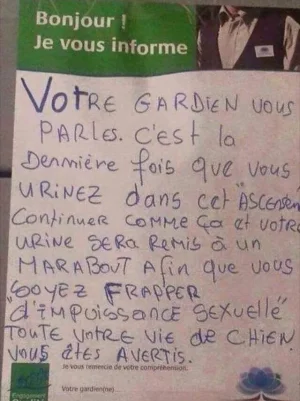 Bonjour !
Je vous informe
VOTRE GARDIEN VOUS
PARLES. C'EST la
Dernmière fois que vous
URINEZ dans cet "ASCENSEUR
Continuer COMME ça et votre
URINE SERA REMIS à UN
MARABOUT AFin que vous
"SOYEZ FRAPPER
d'IMPUISSANCE SEXUELLE"
TOUTE VOTRE VIE de CHIEN
VOUS êtes AVERTIS.
Je vous remercie de votre compréhension.
Votre gardien(ne)....
Engagement
Qualité